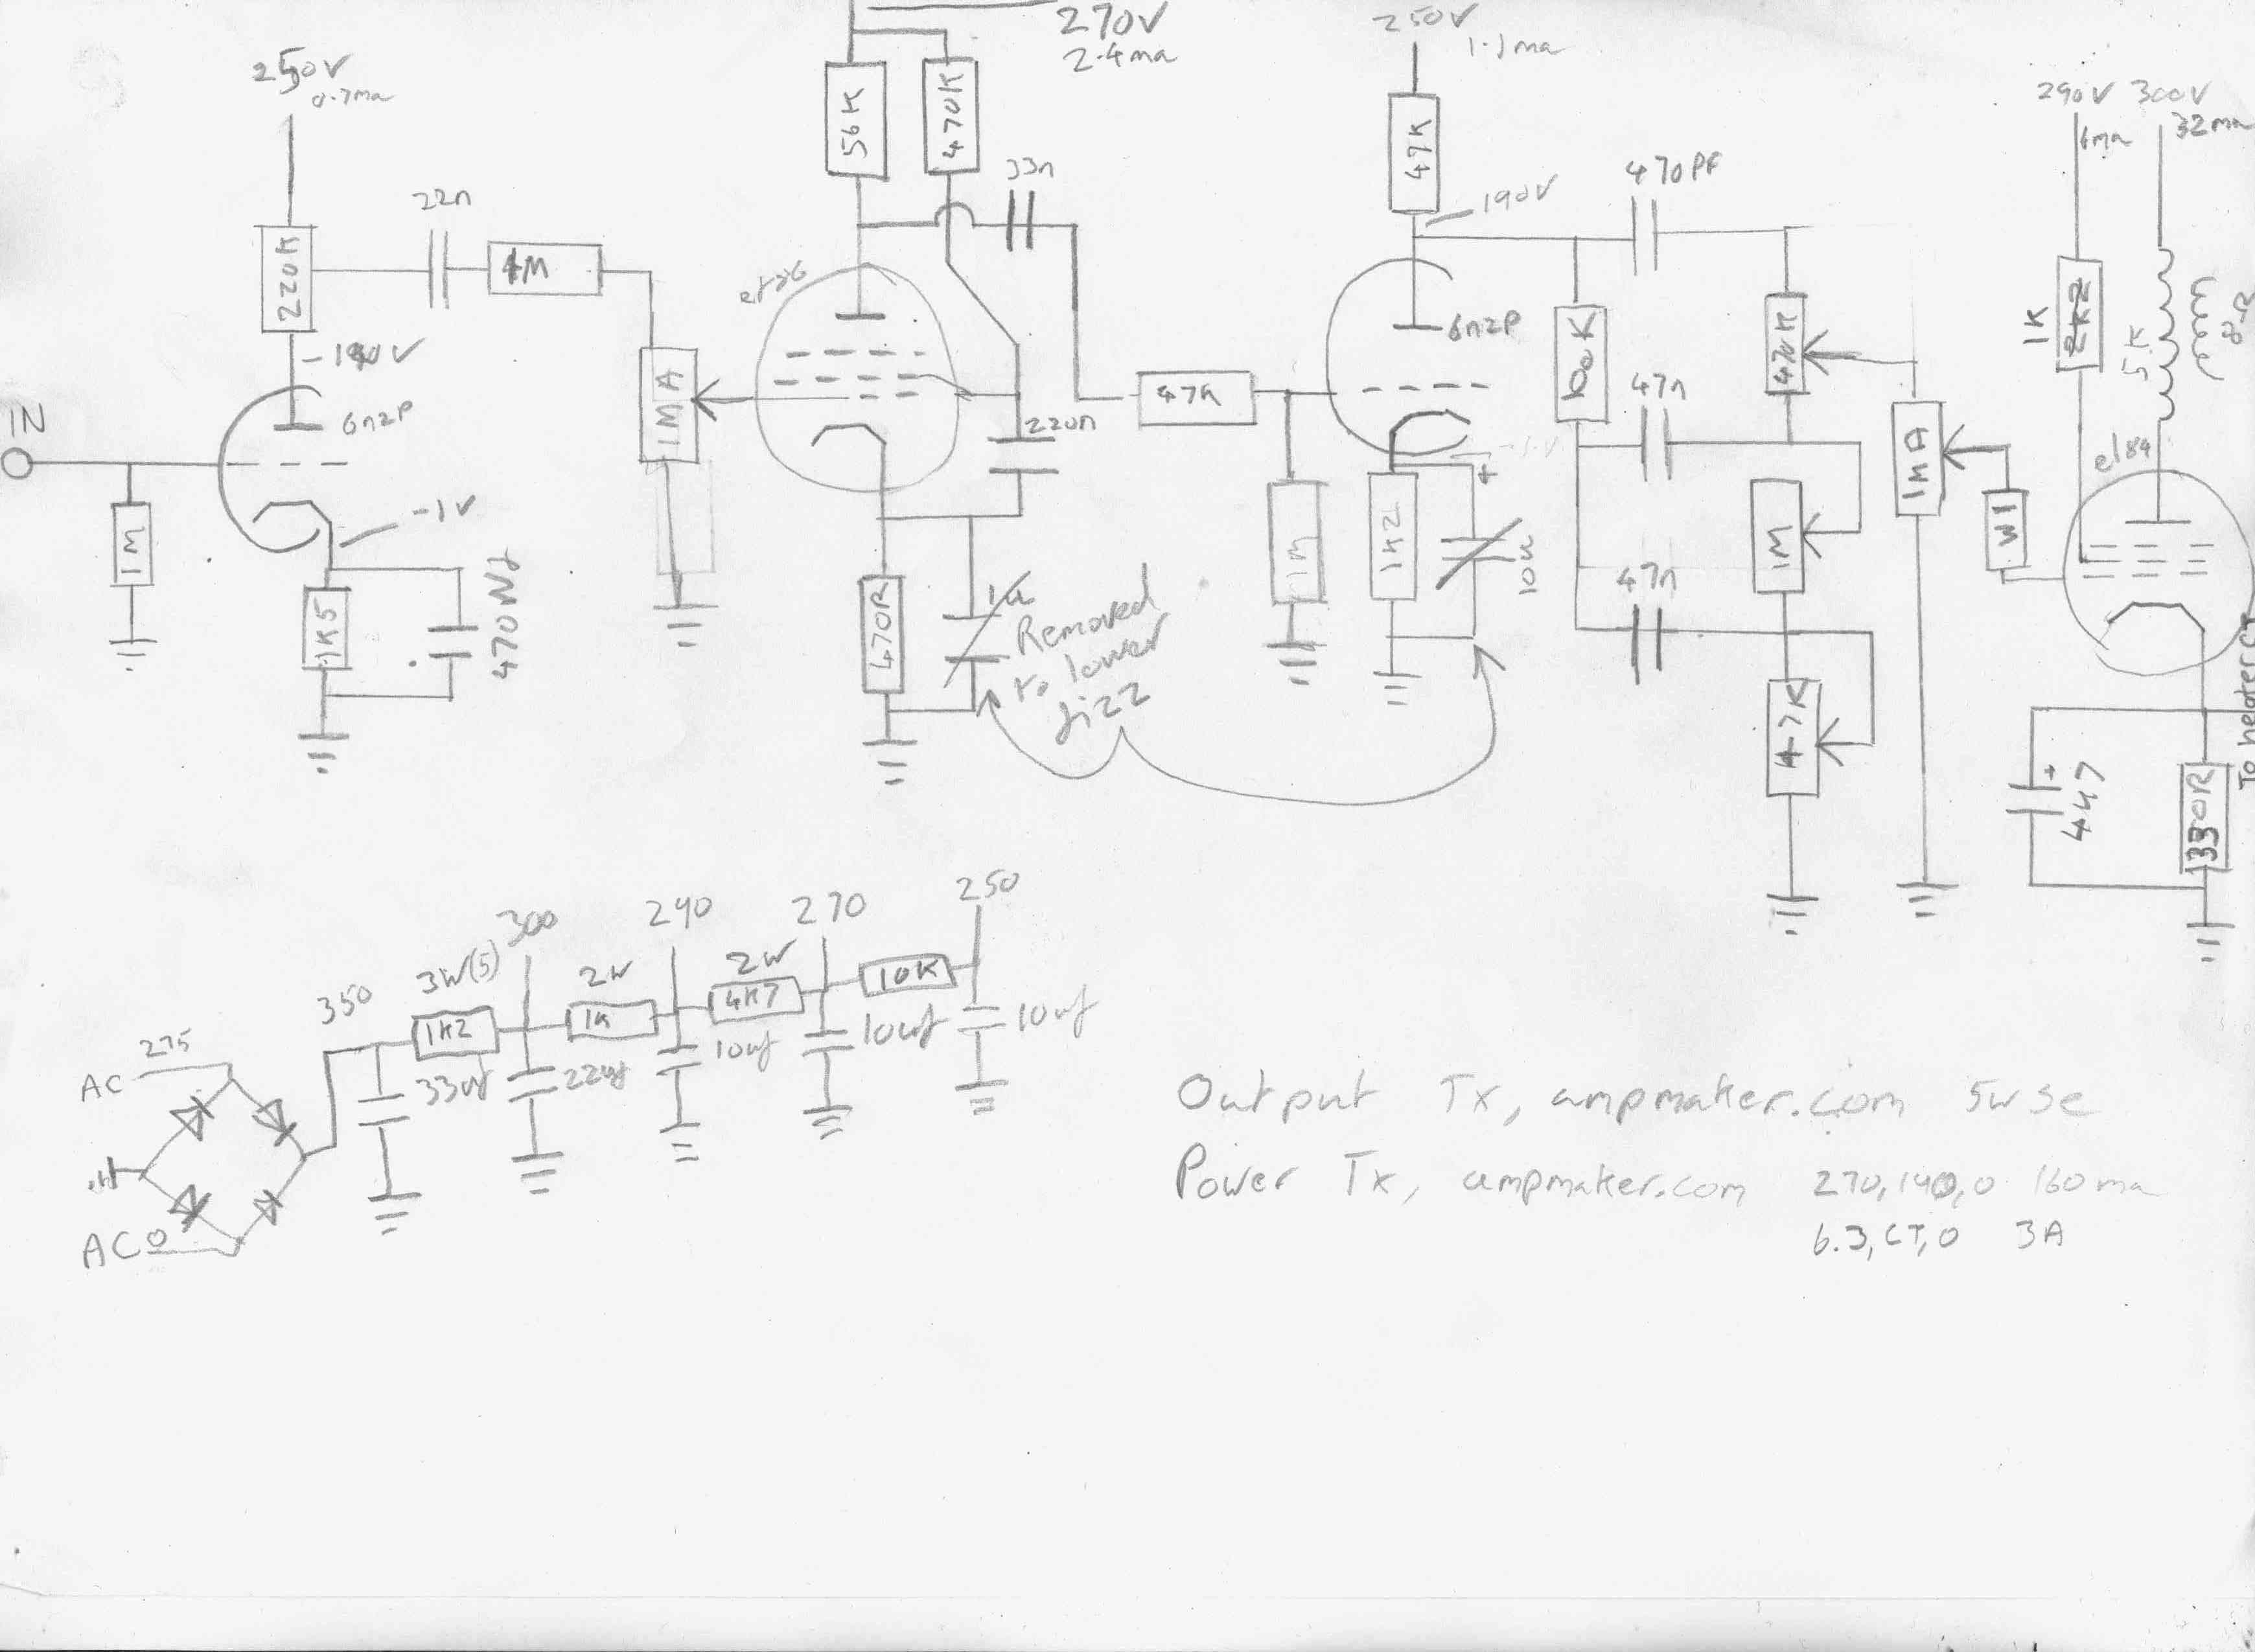 270V
2.4ma
250V
1.1ma
250V
0.7ma
290V 300V
6ma 32ma
56K
470K
47K
33n
470PF
190V
22n
220K
1M
6n2P
5K
1K
2K2
100K
470K
47n
1MA
1MA
47K
220n
el84
IN
6n2P
-1V
1M
1K5
470N
470R
1u
Removed
to lower
fizz
1M
1K2
10u
1M
47n
4.7K
447
330R
To heater CT
250
270
290
300
350
3W(5)
2W
2W
10K
4K7
1K
1K2
10uf
10uf
10uf
22uf
33uf
AC 275
AC 0
Output Tx, ampmaker.com 5w se
Power Tx, ampmaker.com 270,190,0 160ma
6.3,CT,0 3A